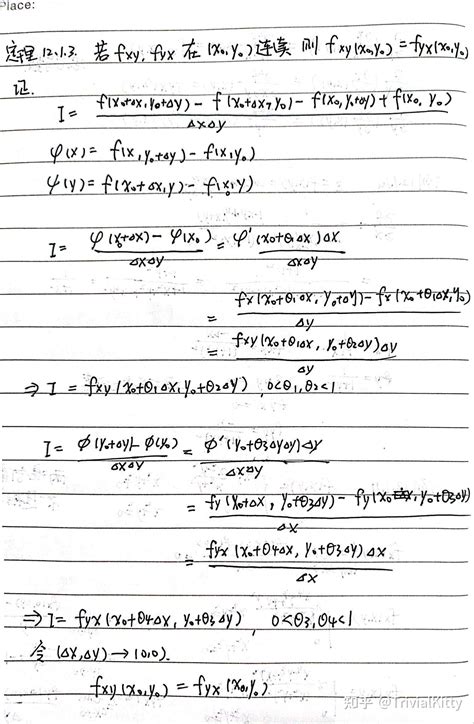 Place:
定理12.1.3. 若 fxy, fyx 在 (x0, y0) 连续 则 fxy(x0, y0) = fyx(x0, y0)
证.
I = \frac{f(x0+Δx, y0+Δy) - f(x0+Δx, y0) - f(x0, y0+Δy) + f(x0, y0)}{ΔxΔy}
φ(x) = f(x, y0+Δy) - f(x, y0)
ψ(y) = f(x0+Δx, y) - f(x0, y)
I = \frac{φ(x0+Δx) - φ(x0)}{ΔxΔy} = \frac{φ'(x0+θ1Δx)Δx}{ΔxΔy}
= \frac{fx(x0+θ1Δx, y0+Δy) - fx(x0+θ1Δx, y0)}{Δy}
= \frac{fxy(x0+θ1Δx, y0+θ2Δy)Δy}{Δy}
⇒ I = fxy(x0+θ1Δx, y0+θ2Δy), 0<θ1, θ2<1
I = \frac{ϕ(y0+Δy) - ϕ(y0)}{ΔxΔy} = \frac{ϕ'(y0+θ3Δy)Δy}{ΔxΔy}
= \frac{fy(x0+Δx, y0+θ3Δy) - fy(x0, y0+θ3Δy)}{Δx}
= \frac{fyx(x0+θ4Δx, y0+θ3Δy)Δx}{Δx}
⇒ I = fyx(x0+θ4Δx, y0+θ3Δy), 0<θ3, θ4<1
令 (Δx, Δy) → (0,0).
fxy(x0, y0) = fyx(x0, y0).
知乎 @TrivialKitty